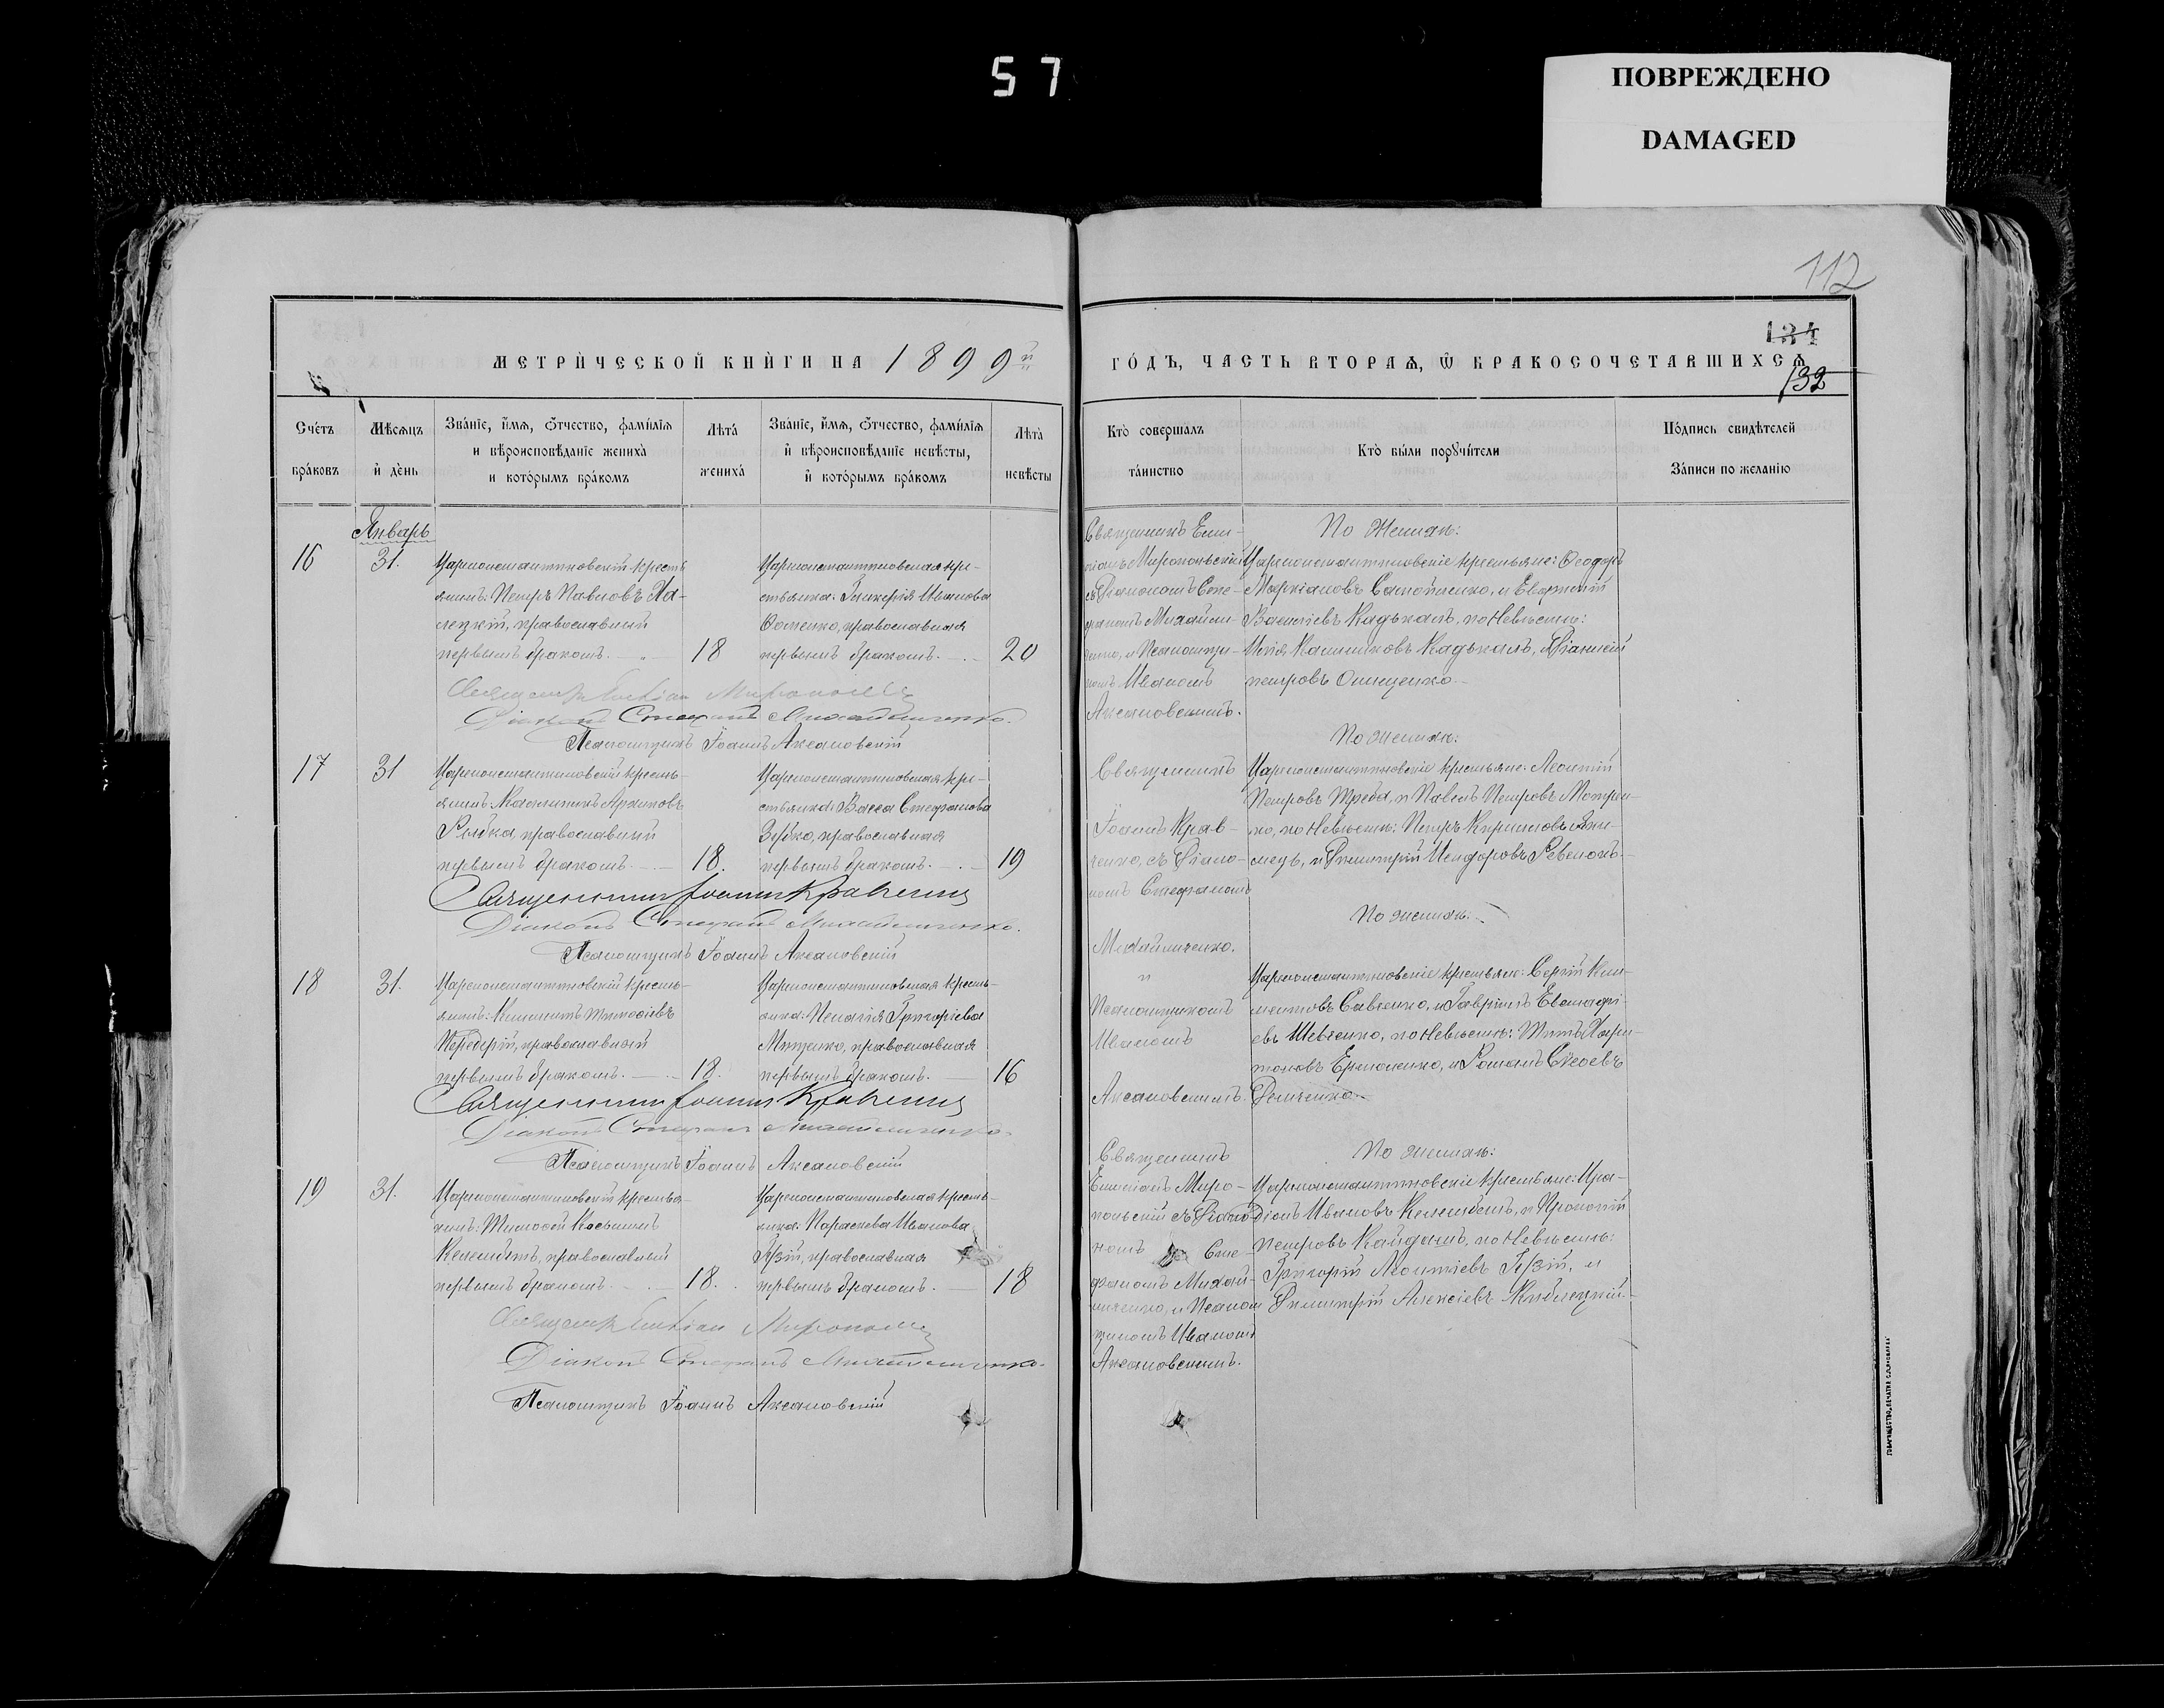 57
ПОВРЕЖДЕНО
DAMAGED
112
134
132
МЕТРИ́ЧЕСКОЙ КНИ́ГИ НА 1899й
ГО́ДЪ, ЧАСТЬ ВТОРАѦ, Ѿ БРАКОСОЧЕТАВШИХСѦ
Сче́тъ бра́ковъ
Мѣсяцъ и҆ де́нь
Зва́нїе, и҆́мѧ, ѻ҆́тчество, фами́лїѧ и вѣроисповѣ́данїе жениха̀ и кото́рымъ бра́комъ
Лѣта̀ жениха̀
Зва́нїе, и҆́мѧ, ѻ҆́тчество, фами́лїѧ и҆ вѣроисповѣ́данїе невѣ́сты, и҆ кото́рымъ бра́комъ
Лѣта̀ невѣ́сты
Кто̀ соверша́лъ та́инство
Кто̀ бы́ли порꙋчи́тели
По́дпись свидѣ́телей За́писи по жела́нїю
Январь
16
31.
Цареконстантиновскій кресть
янинъ: Петръ Павловъ Ха-
лецкій, православный
первымъ бракомъ.
18
Цареконстантиновская кре-
стьянка: Гликерія Иванова
Фоменко, православная
первымъ бракомъ.
20
Священникъ Еми-
ліанъ Миропольскій
съ Діакономъ Сте-
фаномъ Михайли-
ченко, и Псаломщи-
комъ Иваномъ
Аксановскимъ.
По Женихѣ:
Цареконстантиновскіе крестьяне: Феодоръ
Маркіановъ Самойленко, и Евфимій
Васильевъ Кадькалъ, по Невѣстѣ:
Илія Калинниковъ Кадькалъ, и Діонисій
Петровъ Онищенко.
Священникъ Емиліанъ Миропольскій
Діаконъ Стефанъ Михайличенко.
Псаломщикъ Іоаннъ Аксановскій
17
31
Цареконстантиновскій кресть-
янинъ: Каллиникъ Архиповъ
Рыбка, православный
первымъ бракомъ.
18.
Цареконстантиновская кре-
стьянка: Васса Стефанова
Зубко, православная
первымъ бракомъ.
19
Священникъ
Іоаннъ Крав-
ченко, съ Діако-
номъ Стефаномъ
Михайличенко.
и
Псаломщикомъ
Иваномъ
Аксановскимъ.
По женихѣ:
Цареконстантиновскіе крестьяне: Леонтій
Петровъ Треба, и Павелъ Петровъ
по Невѣстѣ: Петръ Кирилловъ
и Димитрій Исидоровъ Ревенокъ.
Священникъ Іоаннъ Кравченко
Діаконъ Стефанъ Михайличенко.
Псаломщикъ Іоаннъ Аксановскій
18
31.
Цареконстантиновскій кресть-
янинъ: Климентъ Тимофеевъ
православный
первымъ бракомъ.
18.
Цареконстантиновская кресть-
янка: Пелагія Григоріева
Мищенко, православная
первымъ бракомъ.
16
По женихѣ:
Цареконстантиновскіе крестьяне: Сергій Кли-
ментовъ Савченко, и Гавріилъ Евстафі-
евъ Шевченко, по Невѣстѣ: Титъ Хари-
тоновъ Ермоленко, и Романъ Сысоевъ
Демченко.
Священникъ Іоаннъ Кравченко
Діаконъ Стефанъ Михайличенко
Псаломщикъ Іоаннъ Аксановскій
19
31.
Цареконстантиновскій крестья-
нинъ: Тимофей Косьминъ
Келембетъ, православный
первымъ бракомъ.
18.
Цареконстантиновская кресть-
янка: Параскева Иванова
Гузій, православная
первымъ бракомъ.
18
Священникъ
Емиліанъ Миро-
польскій съ Діако-
номъ Сте-
фаномъ Михай-
личенко, и Псалом
щикомъ Иваномъ
Аксановскимъ.
По женихѣ:
Цареконстантиновскіе крестьяне: Ира-
діонъ Ивановъ Келембетъ, и Прокопій
Петровъ Кайдашъ, по Невѣстѣ:
Григорій Леонтіевъ Гузій, и
Димитрій Алексіевъ Кублецкій.
Священникъ Емиліанъ Миропольскій
Діаконъ Стефанъ Михайличенко.
Псаломщикъ Іоаннъ Аксановскій